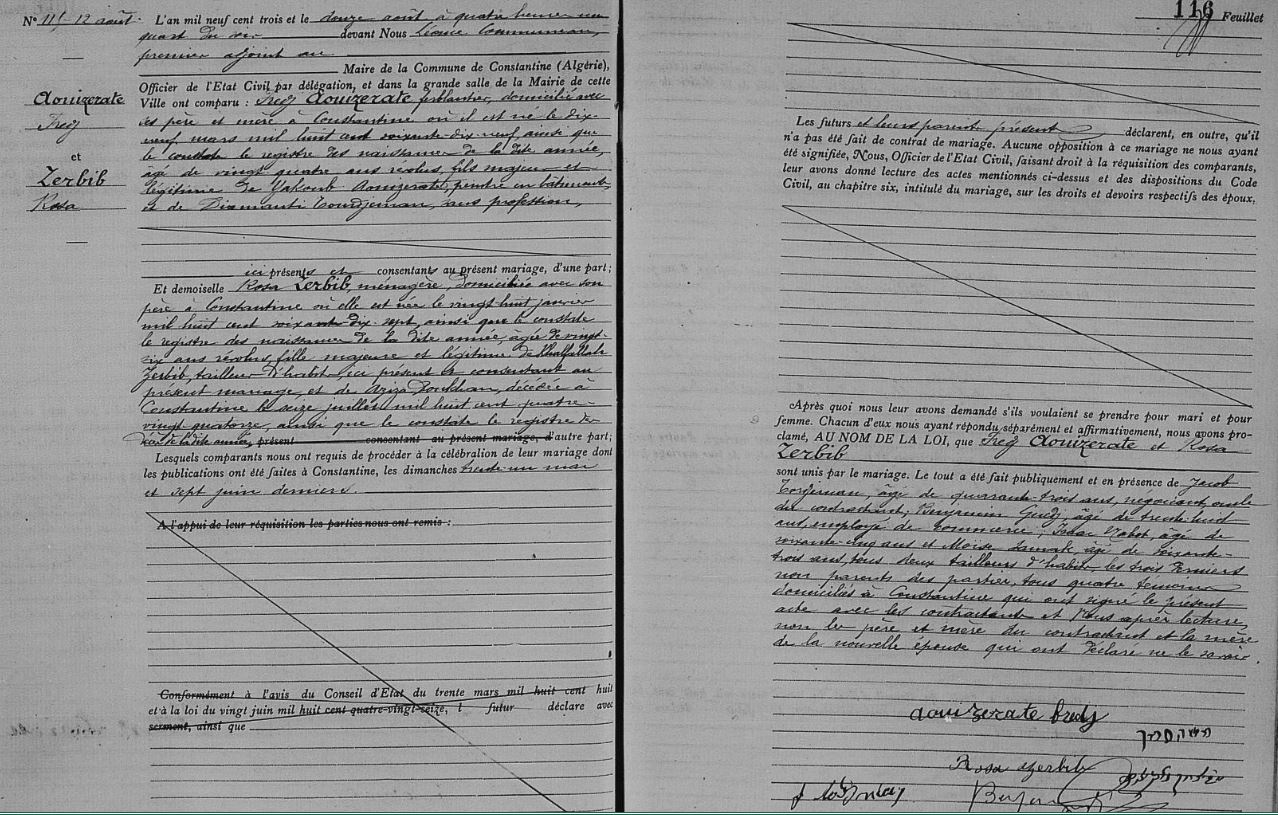 N° 115 - 12 août.
L'an mil neuf cent trois et le douze août à quatre heures un
quart du soir devant Nous
premier adjoint au
Maire de la Commune de Constantine (Algérie),
Officier de l'Etat Civil par délégation, et dans la grande salle de la Mairie de cette
Ville ont comparu : Fredj Aouizerate ferblantier, domicilié avec
ses père et mère à Constantine où il est né le dix-
neuf mars mil huit cent soixante-dix-neuf ainsi que
le constate le registre des naissances de la dite année,
âgé de vingt quatre ans révolus, fils majeur et
légitime de Yakoub Aouizerate, peintre en bâtiments
et de Diamanti Tourdjeman, sans profession,
Aouizerate
Fredj
et
Zerbib
Rosa
ici présents et consentants au présent mariage, d'une part ;
Et demoiselle Rosa Zerbib, ménagère, domiciliée avec son
père à Constantine où elle est née le vingt huit janvier
mil huit cent soixante-dix-sept, ainsi que le constate
le registre des naissances de la dite année, âgée de vingt-
six ans révolus, fille majeure et légitime de Khalfallah
Zerbib, tailleur d'habits ici présent et consentant au
présent mariage, et de Aziza, décédée à
Constantine le seize juillet mil huit cent quatre-
vingt quatorze, ainsi que le constate le registre des
décès de la dite année, présent consentant au présent mariage, d'autre part ;
Lesquels comparants nous ont requis de procéder à la célébration de leur mariage dont
les publications ont été faites à Constantine, les dimanches trente-un mai
et sept juin derniers.
A l'appui de leur réquisition les parties nous ont remis :
Conformément à l'avis du Conseil d'Etat du trente mars mil huit cent huit
et à la loi du vingt juin mil huit cent quatre-vingt-seize, l futur déclare avec
serment, ainsi que
116 Feuillet
Les futurs et leurs parents présents déclarent, en outre, qu'il
n'a pas été fait de contrat de mariage. Aucune opposition à ce mariage ne nous ayant
été signifiée, Nous, Officier de l'Etat Civil, faisant droit à la réquisition des comparants,
leur avons donné lecture des actes mentionnés ci-dessus et des dispositions du Code
Civil, au chapitre six, intitulé du mariage, sur les droits et devoirs respectifs des époux.
Après quoi nous leur avons demandé s'ils voulaient se prendre pour mari et pour
femme. Chacun d'eux nous ayant répondu séparément et affirmativement, nous avons pro-
clamé, AU NOM DE LA LOI, que Fredj Aouizerate et Rosa
Zerbib
sont unis par le mariage. Le tout a été fait publiquement et en présence de Jacob
Tordjeman, âgé de quarante trois ans, négociant, oncle
du contractant, Benjamin Guedj, âgé de trente huit
ans, employé de commerce, Isaac, âgé de
soixante-cinq ans et Moïse, âgé de soixante-
trois ans, tous deux tailleurs d'habits, les trois derniers
non parents des parties, tous quatre témoins
domiciliés à Constantine qui ont signé le présent
acte avec les contractants et Nous après lecture,
non les père et mère du contractant et la mère
de la nouvelle épouse qui ont déclaré ne le savoir.
aouizerate fredj
Rosa zerbib